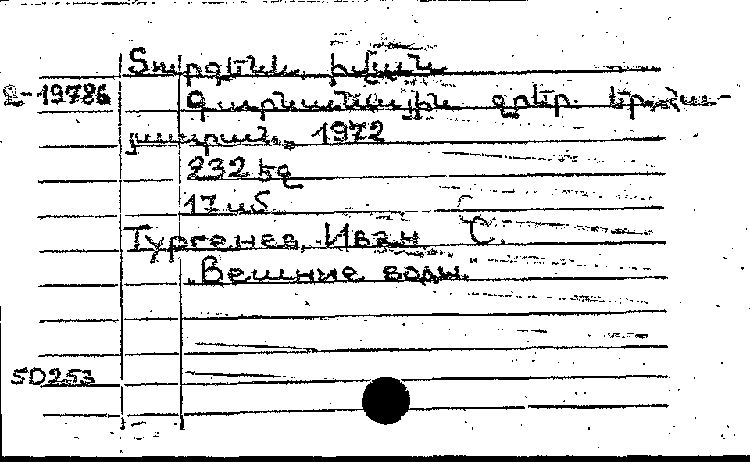 Տուրգենև, Իվան
Ձ-19786
Գարնանային ջրեր. Եր., Հա-
յաստան, 1972
232 էջ
17 սմ
Тургенев, Иван С.
Вешние воды.
50253